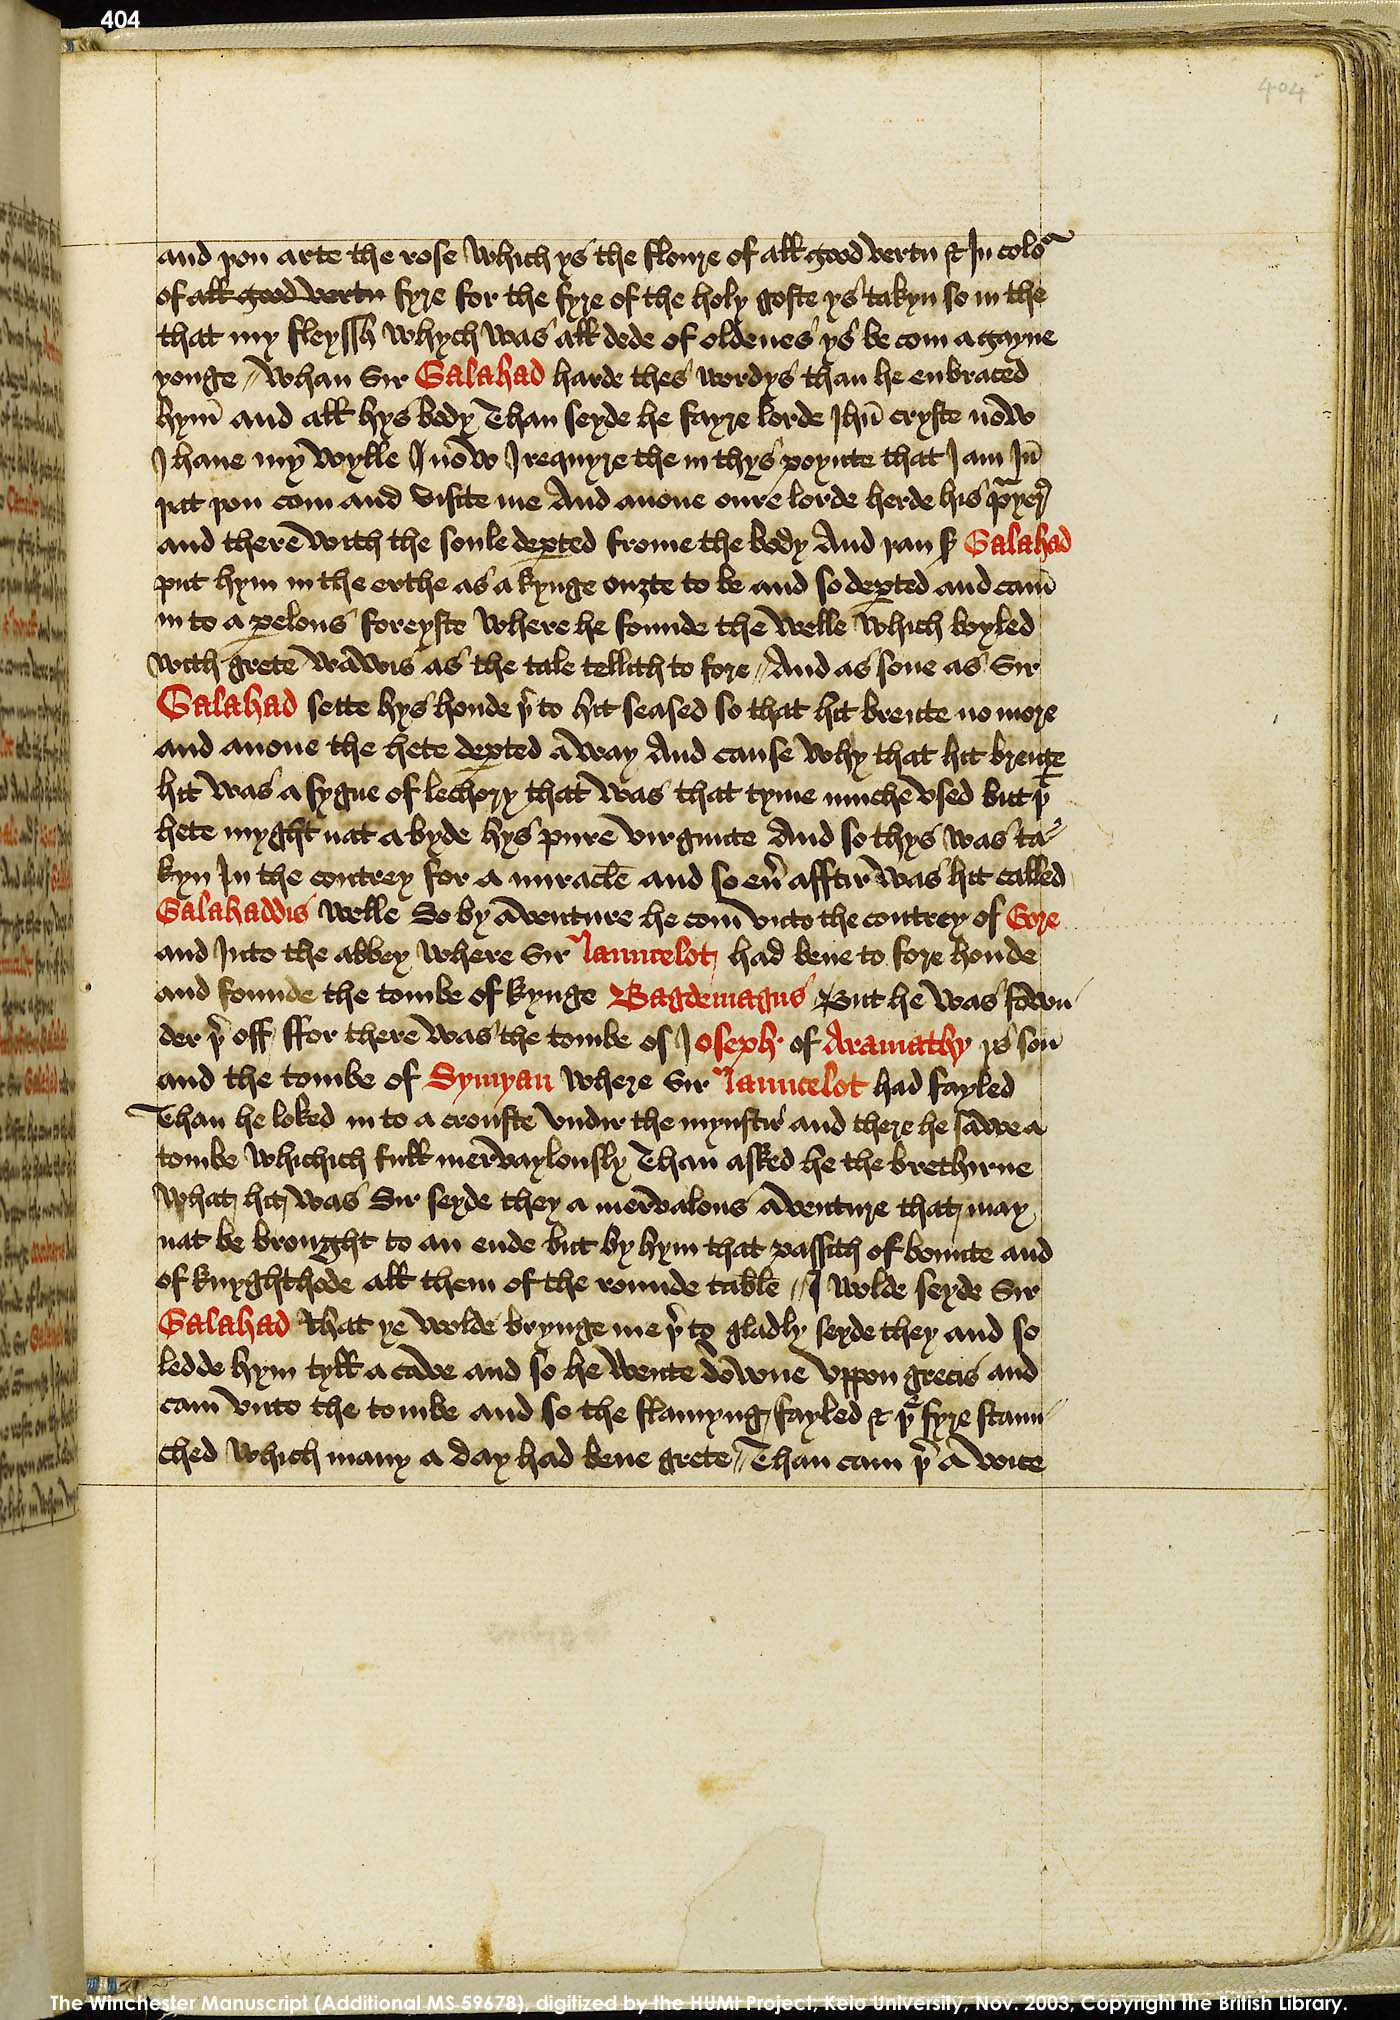 404
404
and þou arte the rose which ys the floure of all good vertu & In coloᵘr
of all good vertu fyre for the fyre of the holy goste ys takyn so in the
that my fleyssh whych was all dede of oldenes ys be com agayne
yonge // Whan Sir Galahad harde thes wordys than he enbraced
hym̄ and all hys body Than seyde he fayre lorde Jhū cryste now
I haue my wylle I now I requyre the in thys poynte that I am In̄
þat þou com and visite me And anone oure lorde herde his p̃yer
and therē with the soule depted frome the body And þan s̄ Galahad
put hym in the erthe as a kynge ouȝte to be and so depted and cam̄
in to a pelous foreyste where he founde the welle which boyled
with grete wawis as the tale tellith to fore // And as sone as Sir
Galahad sette hys honde þ̄ to hit seased so that hit brente no more
and anone the hete depted away And cause why that hit brente
hit was a sygne of lechory that was that tyme muche vsed but þᵗ
hete myght nat a byde hys pure virginite And so thys was ta
kyn In the contrey for a miracle and so eū afftir was hit called
Galahaddis welle So by aventure he com vnto the contrey of Gore
and Into the abbey where Sir launcelot had bene to fore honde
and founde the tombe of kynge Bagdemagus But he was fown
der þ̄ off ffor there was the tombe of Joseph of Aramathy ys son̄
and the tombe of Symyan where Sir launcelot had fayled
Than he loked in to a croufte vndir the mynstir and there he sawe a
tombe whichich full mervaylously Than asked he the brethirne
what hit was Sir seyde they a mervalous aventure that may
nat be brought to an ende but by hym that passith of bounte and
of knyghthode all them of the rounde table // I wolde seyde Sir
Galahad that ye wolde brynge me þ̄ to gladly seyde they and so
ledde hym tyll a cave and so he wente downe vppon grecis and
cam vnto the tombe and so the flamyng fayled & þᵉ fyre staun
ched which many a day had bene grete // Than cam þ̄ a voice
The Winchester Manuscript (Additional MS 59678), digitized by the HUMI Project, Keio University, Nov. 2003; Copyright the British Library.